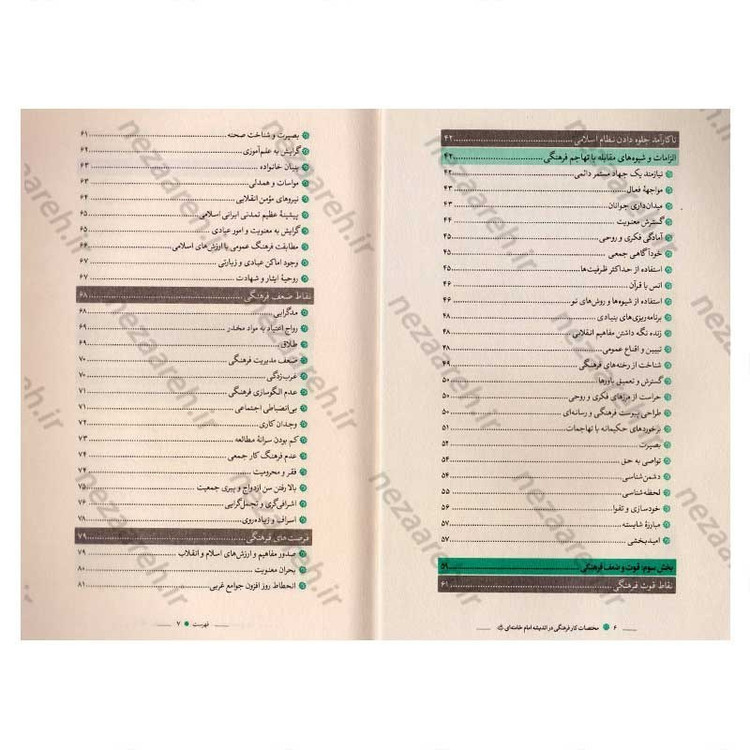 ناکارآمد جلوه دادن نظام اسلامی ۴۲
الزامات و شیوه‌های مقابله با تهاجم فرهنگی ۴۲
نیازمند یک جهاد مستمر دائمی ۴۲
مواجههٔ فعال ۴۳
میدان‌داری جوانان ۴۳
گسترش معنویت ۴۴
آمادگی فکری و روحی ۴۵
خودآگاهی جمعی ۴۵
استفاده از حداکثر ظرفیت‌ها ۴۵
انس با قرآن ۴۶
استفاده از شیوه‌ها و روش‌های نو ۴۶
برنامه‌ریزی‌های بنیادی ۴۸
زنده نگه داشتن مفاهیم انقلابی ۴۸
تبیین و اقناع عمومی ۴۸
شناخت از رخنه‌های فرهنگی ۴۹
گسترش و تعمیق باورها ۵۰
حراست از مرزهای فکری و روحی ۵۰
طراحی پیوست فرهنگی و رسانه‌ای ۵۰
برخوردهای حکیمانه با تهاجمات ۵۱
بصیرت ۵۲
تواصی به حق ۵۴
دشمن‌شناسی ۵۴
لحظه‌شناسی ۵۵
خودسازی و تقوا ۵۶
مبارزهٔ شایسته ۵۷
امیدبخشی ۵۷
بخش سوم: قوت و ضعف فرهنگی ۵۹
نقاط قوت فرهنگی ۶۱
۶ مختصات کار فرهنگی در اندیشه امام خامنه‌ای
بصیرت و شناخت صحنه ۶۱
گرایش به علم‌آموزی ۶۲
بنیان خانواده ۶۳
مواسات و همدلی ۶۳
نیروهای مؤمن انقلابی ۶۴
پیشینهٔ عظیم تمدنی ایرانی اسلامی ۶۵
گرایش به معنویت و امور عبادی ۶۵
مطابقت فرهنگ عمومی با ارزش‌های اسلامی ۶۶
وجود اماکن عبادی و زیارتی ۶۷
روحیهٔ ایثار و شهادت ۶۷
نقاط ضعف فرهنگی ۶۸
مدگرایی ۶۸
رواج اعتیاد به مواد مخدر ۶۹
طلاق ۶۹
ضعف مدیریت فرهنگی ۷۰
غرب‌زدگی ۷۰
عدم الگوسازی فرهنگی ۷۱
بی‌انضباطی اجتماعی ۷۱
وجدان کاری ۷۲
کم بودن سرانهٔ مطالعه ۷۳
عدم فرهنگ کار جمعی ۷۴
فقر و محرومیت ۷۴
بالا رفتن سن ازدواج و پیری جمعیت ۷۵
اشرافی‌گری و تجمل‌گرایی ۷۶
اسراف و زیاده‌روی ۷۸
فرصت‌های فرهنگی ۷۹
صدور مفاهیم و ارزش‌های اسلام و انقلاب ۷۹
بحران معنویت ۸۰
انحطاط روز افزون جوامع غربی ۸۱
فهرست ۷
nezaareh.ir